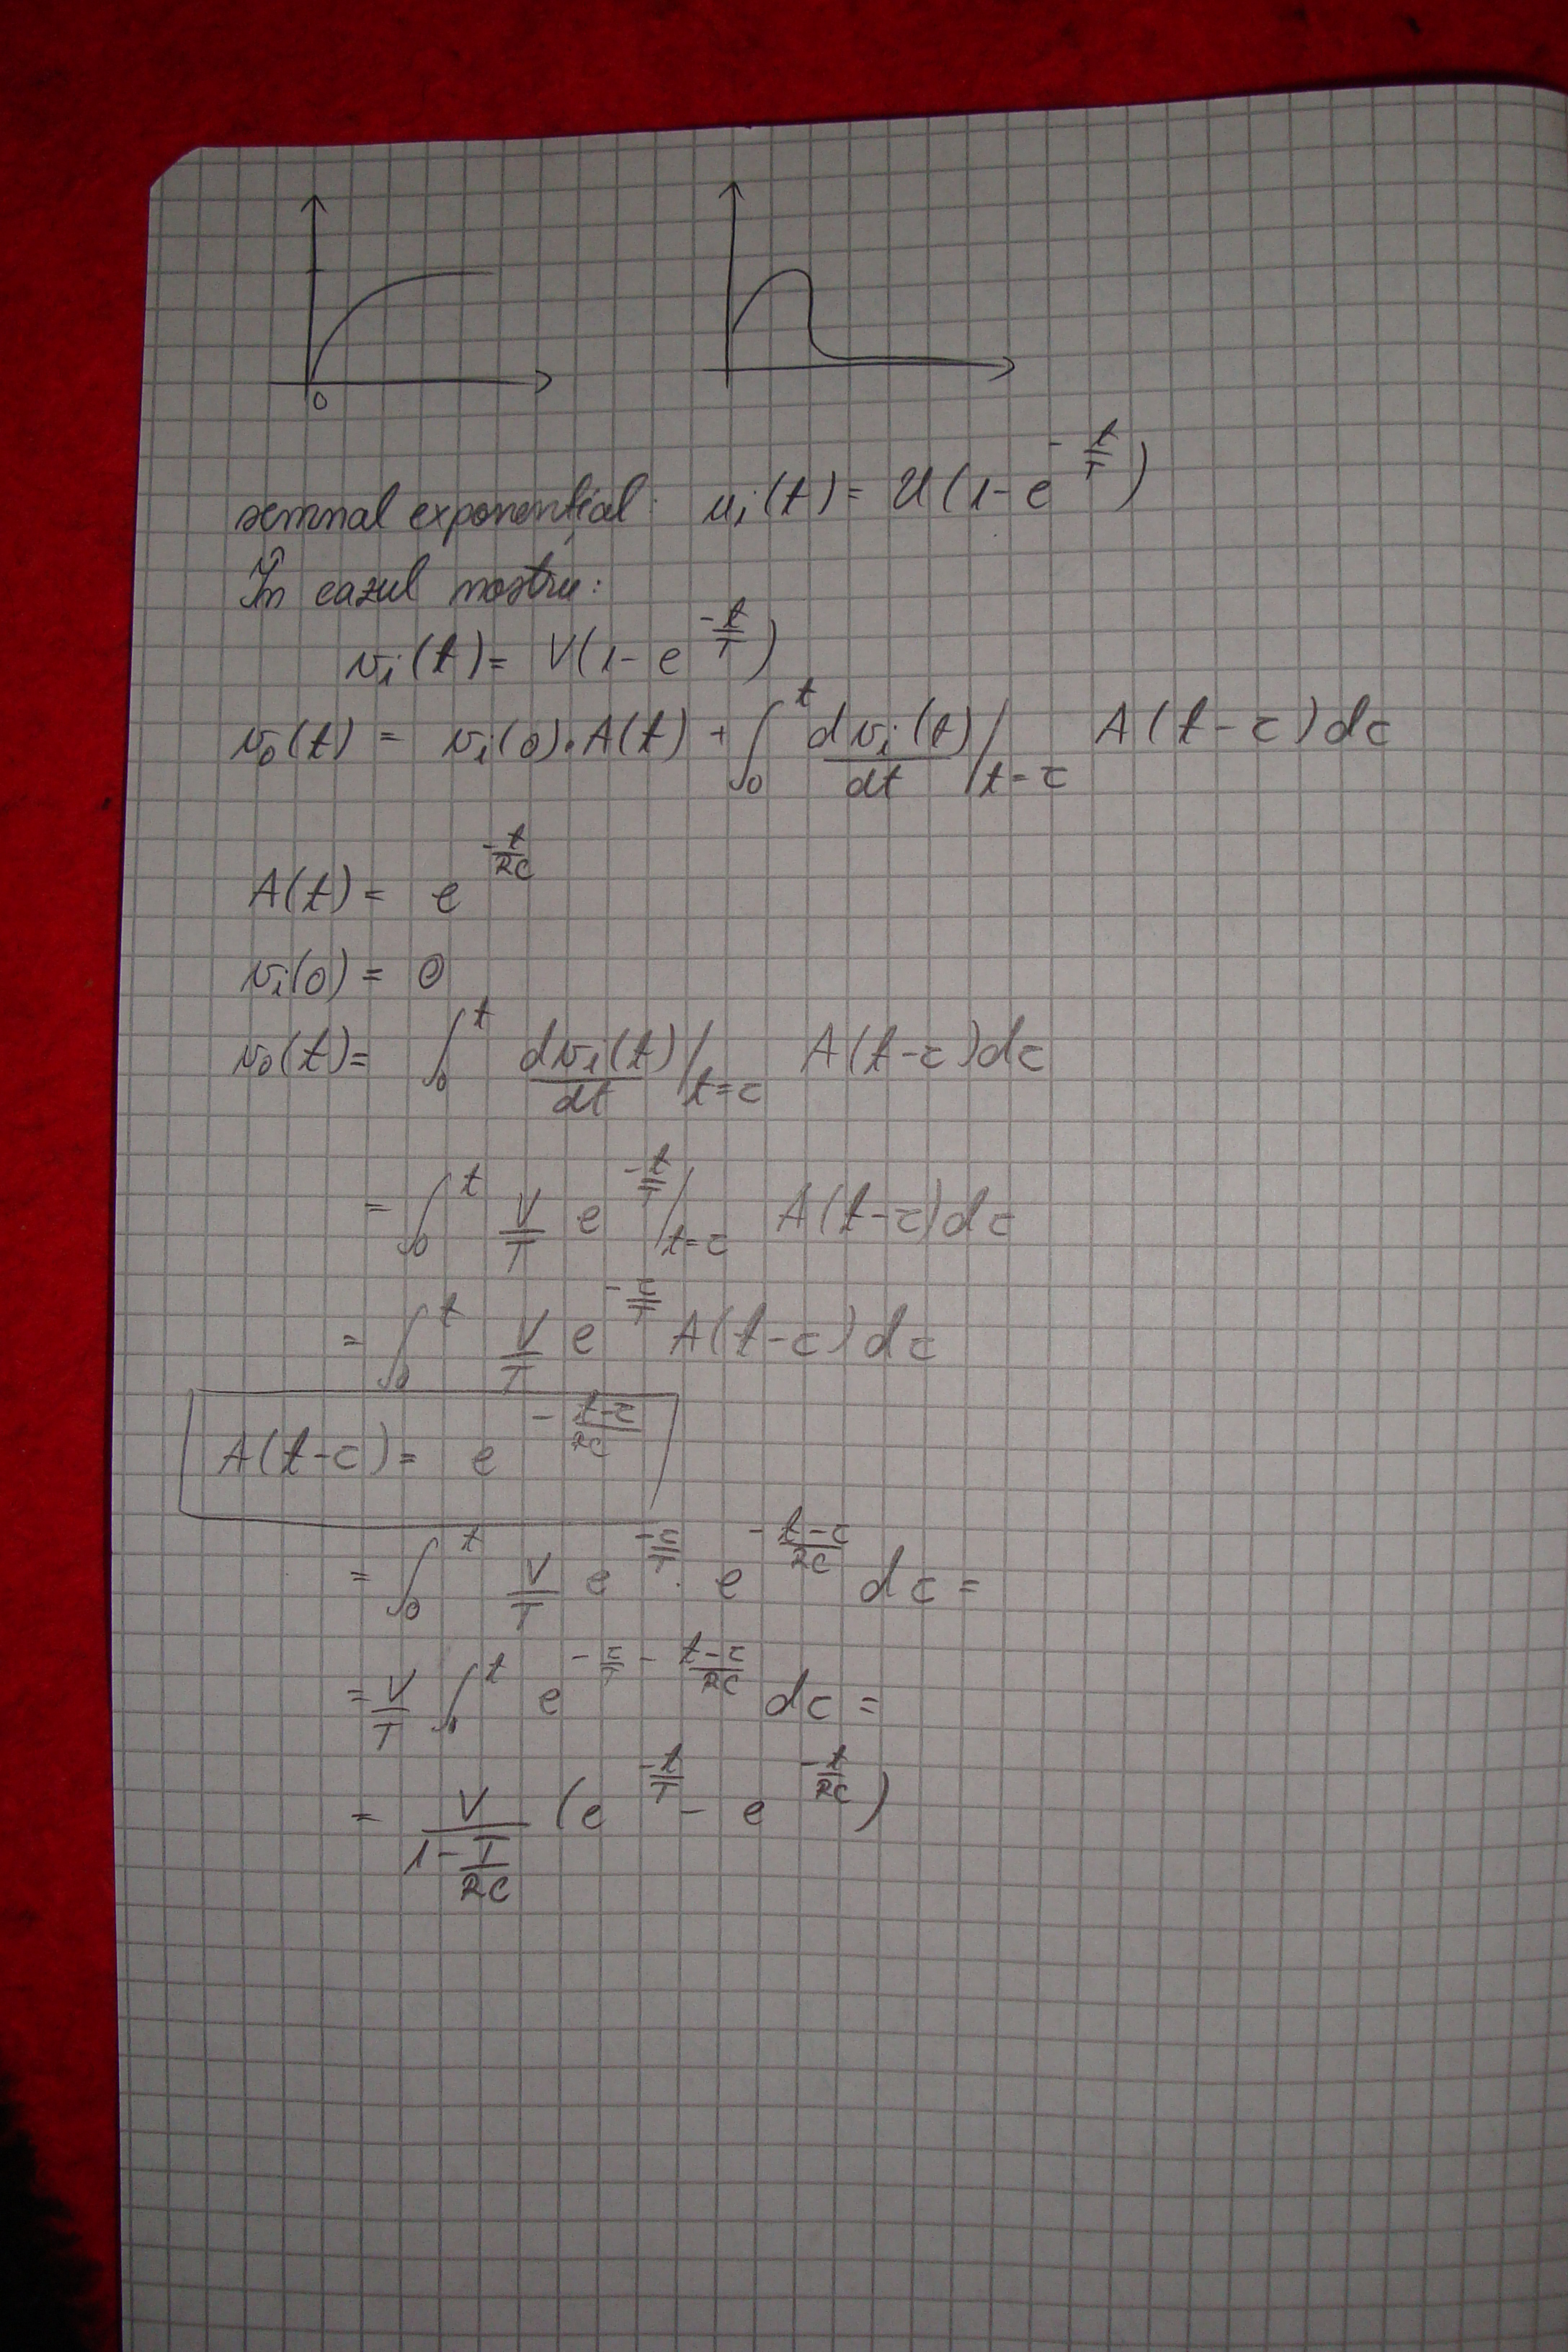 0
semnal exponențial: u_i(t) = U(1-e^{-t/T})
În cazul nostru:
v_i(t) = V(1-e^{-t/T})
v_o(t) = v_i(0)·A(t) + ∫_0^t dv_i(t)/dt /_{t=τ} A(t-τ)dτ
A(t) = e^{-t/RC}
v_i(0) = 0
v_o(t) = ∫_0^t dv_i(t)/dt /_{t=τ} A(t-τ)dτ
= ∫_0^t V/T e^{-t/T} /_{t=τ} A(t-τ)dτ
= ∫_0^t V/T e^{-τ/T} A(t-τ)dτ
A(t-τ) = e^{-(t-τ)/RC}
= ∫_0^t V/T e^{-τ/T} · e^{-(t-τ)/RC} dτ =
= V/T ∫_0^t e^{-τ/T - (t-τ)/RC} dτ =
= V/(1-T/RC) (e^{-t/T} - e^{-t/RC})